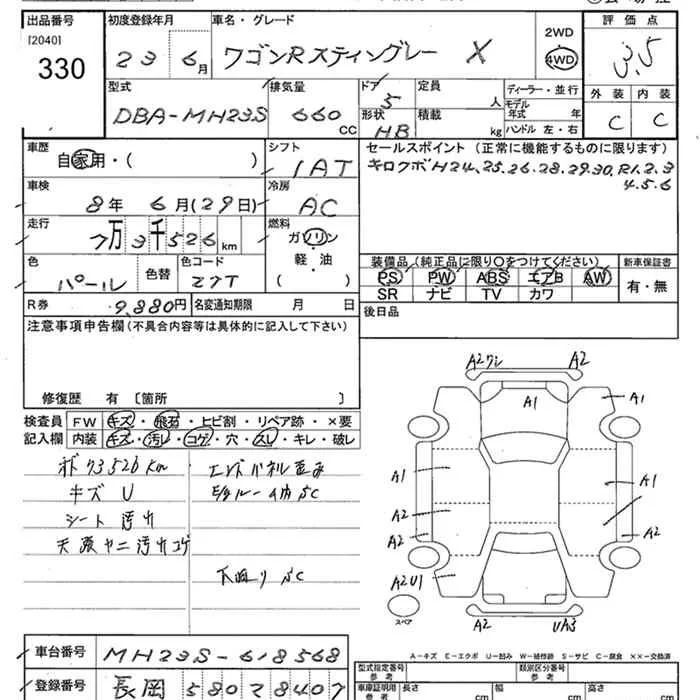 出品番号
[2040]
330
初度登録年月
23 6月
車名・グレード
ワゴンRスティングレー X
2WD
4WD
評価点
3.5
外装 内装
C C
型式
DBA-MH23S
排気量
660 CC
ドア
5
形状
HB
定員
人
積載
kg
ディーラー・並行
モデル年式 年
ハンドル 左・右
車歴
自家用・( )
シフト
IAT
セールスポイント (正常に機能するものに限ります)
キロクボH24,25,26,28,29,30,R1,2,3
4,5,6
車検
8年 6月(29日)
冷房
AC
走行
7万3千526km
燃料
ガソリン
軽・油
( )
色
パール
色替
色コード
Z7T
装備品(純正品に限り○をつけてください)
PS PW ABS エアB AW
SR ナビ TV カワ
新車保証書
有・無
R券
9,880円
名変通知期限 月 日
後日品
注意事項申告欄(不具合内容等は具体的に記入して下さい)
修復歴 有 〔箇所 〕
検査員記入欄
FW キズ・飛石・ヒビ割・リペア跡・×要
内装 キズ・汚レ・コゲ・穴・スレ・キレ・破レ
73526km
キズ U
シート 汚れ
天張ヤニ汚れコゲ
下廻り SC
A2ワレ A2
A1
A1
A1 A1
A2
A2 A2
A2U1
A2 UA3
スペア
A-キズ E-エクボ U-凹み W-補修跡 S-サビ C-腐食 XX-交換済
車台番号
MH23S-618568
登録番号
長岡 580 2 8407
型式指定番号
参考
類別区分番号
参考
車庫証明用
参考
長さ cm
幅 cm
高さ cm